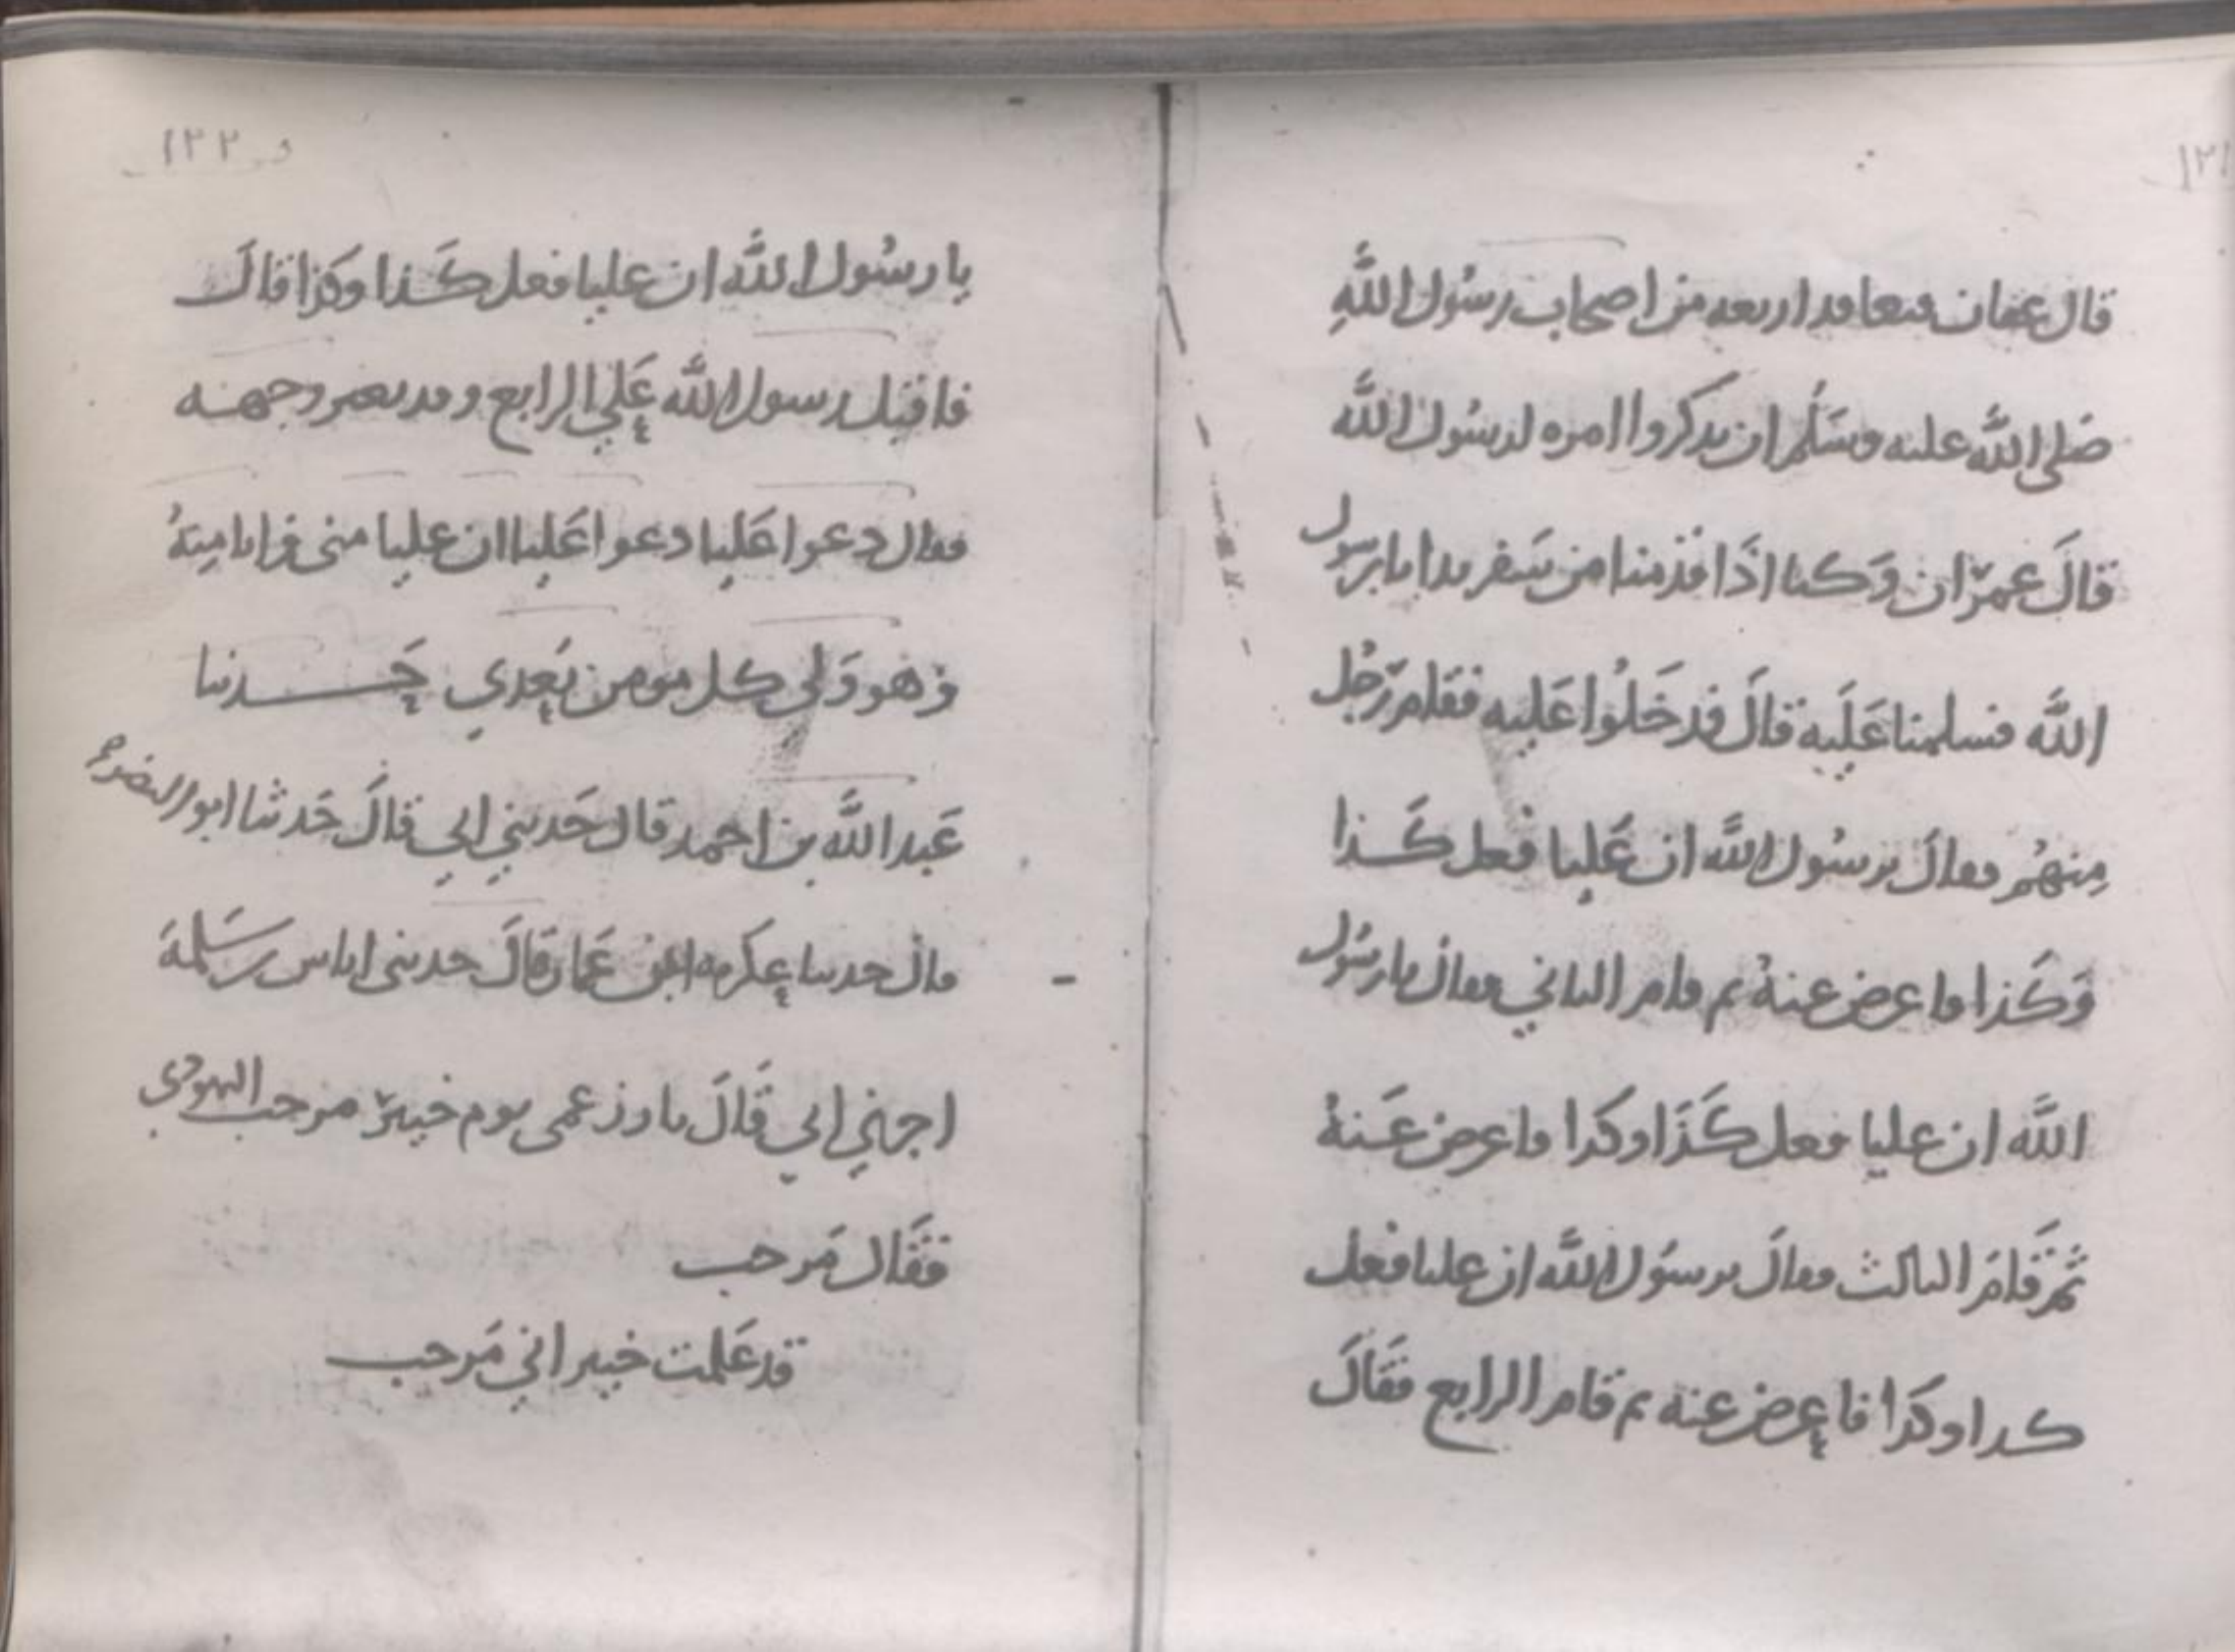 ١٢١
قال عفان فتعاقد اربعه من اصحاب رسُول اللَّهِ
صَلى اللَّه عليه وسَلَّم ان يذكروا امره لرسُول اللَّه
قالَ عمرَان وَكنا اذَا قدمنا من سَفر بدانا برسول
اللَّه فسلمنا عَلَيه قالَ فدخَلُوا عَليه فقام رَجُل
مِنهُم فقالَ يرسُول اللَّه ان عَليا فعل كَذا
وَكَذا فاعرض عنهُ ثم قام الثاني فقال يا رسُول
اللَّه ان عليا فعل كَذَا وكذا فاعرض عَنهُ
ثُمَّ قَامَ الثالث فقالَ يرسُول اللَّه ان عليا فعل
كذا وكذا فاعرض عنه ثم قام الرابع فقَالَ
١٢٢
يا رسُول اللَّه ان عليا فعل كَذا وكَذا قالَ
فاقبل رسول اللَّه عَلي الرابع وقد تغير وجهه
فقال دعوا عَليا دعوا عَليا ان عليا مني وانا مِنهُ
وَهو وَلي كل مومن بَعدي حَدثنا
عَبد اللَّه بن احمد قال حَدثني ابي قالَ حَدثنا ابو النضر
قال حدثنا عكرمه ابن عَمار قالَ حدثني اياس بن سَلمةَ
اخبرني ابي قَالَ بارز عمى يوم خيبرَ مرحب اليهودى
فقَال مَرحب
قد عَلمت خيبر اني مَرحب